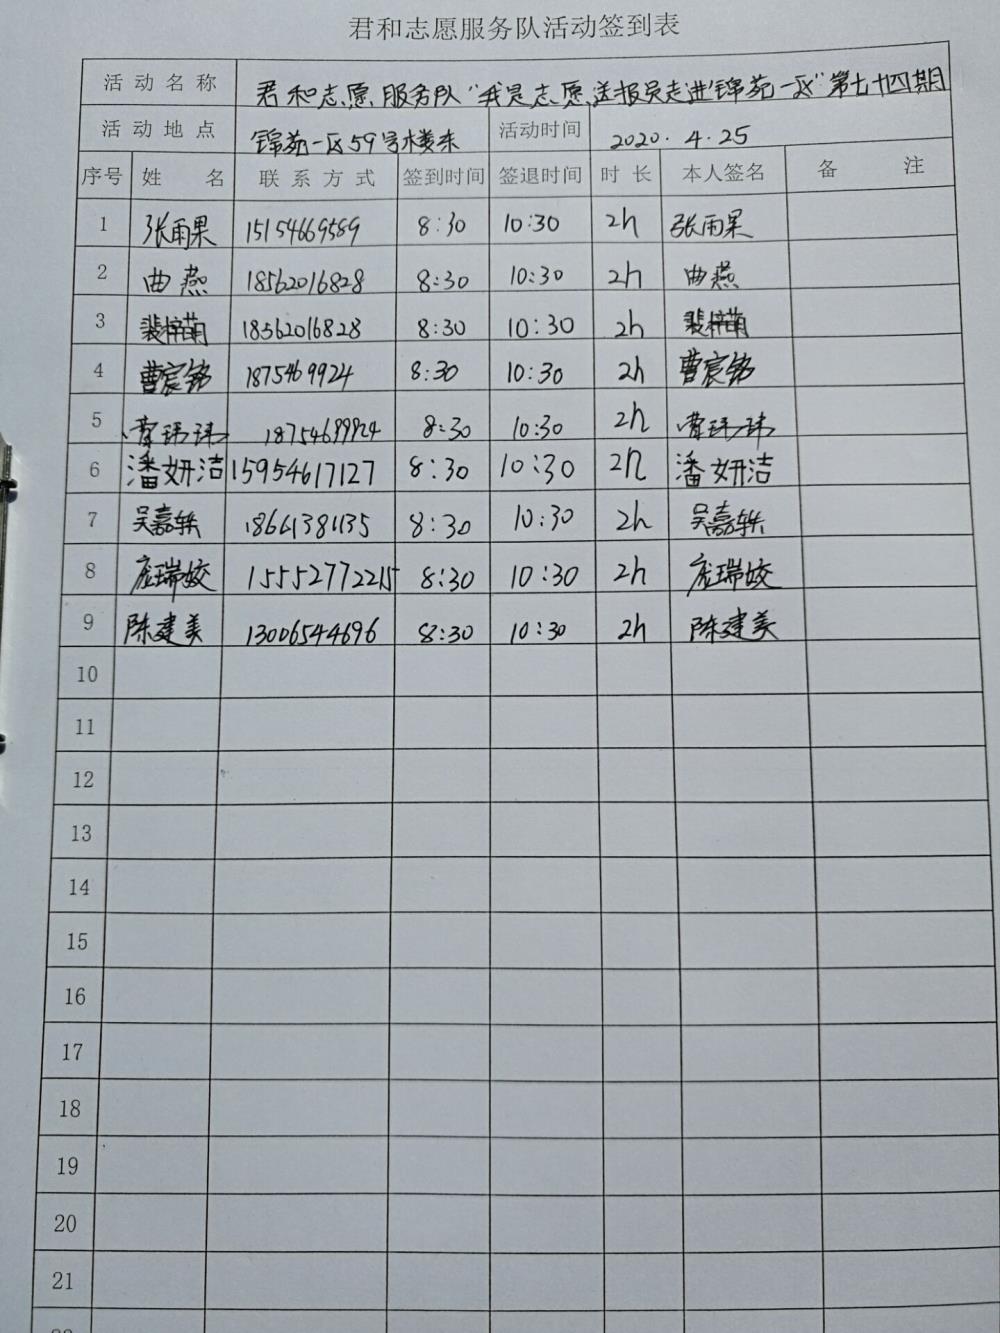 君和志愿服务队活动签到表
活动名称 君和志愿服务队“我是志愿送报员走进锦苑一区”第七十四期
活动地点 锦苑一区59号楼东 活动时间 2020.4.25
序号 姓 名 联系方式 签到时间 签退时间 时长 本人签名 备 注
1 张雨果 15154669589 8:30 10:30 2h 张雨果
2 曲燕 18562016828 8:30 10:30 2h 曲燕
3 裴梓萌 18562016828 8:30 10:30 2h 裴梓萌
4 曹宸铭 1875469924 8:30 10:30 2h 曹宸铭
5 曹玮玮 18754699924 8:30 10:30 2h 曹玮玮
6 潘妍洁 15954617127 8:30 10:30 2h 潘妍洁
7 吴嘉轶 18661381135 8:30 10:30 2h 吴嘉轶
8 庞瑞姣 15552772215 8:30 10:30 2h 庞瑞姣
9 陈建美 13006544696 8:30 10:30 2h 陈建美
10
11
12
13
14
15
16
17
18
19
20
21